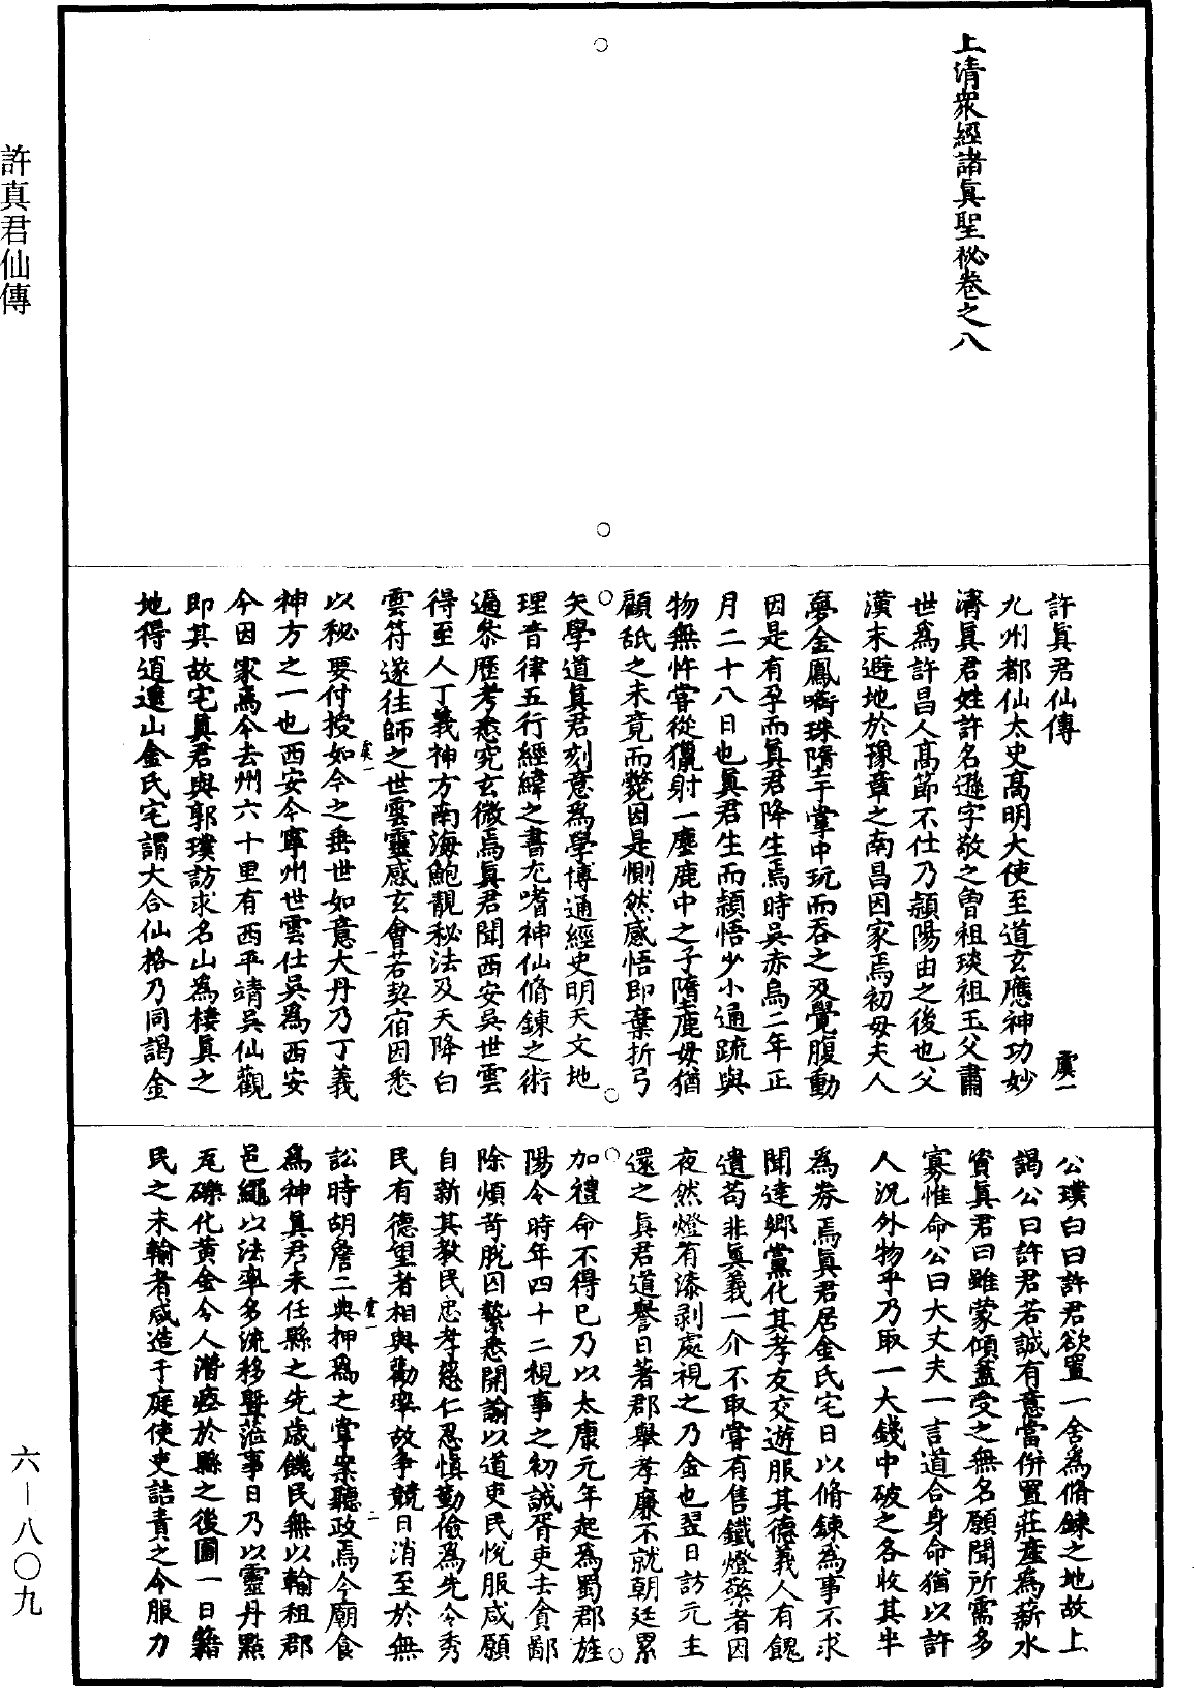 許真君仙傳
上清衆經諸眞聖祕卷之八
許眞君仙傳
虞一
九州都仙太史高明大使至道玄應神功妙
濟眞君姓許名遜字敬之曾祖琰祖玉父肅
世為許昌人高節不仕乃潁陽由之後也父
漢末避地於豫章之南昌因家焉初母夫人
夢金鳳銜珠墮于掌中玩而吞之及覺腹動
因是有孕而眞君降生焉時吳赤烏二年正
月二十八日也眞君生而穎悟少小通疏與
物無忤嘗從獵射一麈鹿中之子墮鹿母猶
顧舐之未竟而斃因是惻然感悟即棄折弓
矢學道眞君刻意為學博通經史明天文地
理音律五行經緯之書尤嗜神仙脩鍊之術
遍叅歷考悉究玄微焉眞君聞西安吳世雲
得至人丁義神方南海鮑靚秘法及天降白
雲符遂往師之世雲靈感玄會若契宿因悉
虞一
一
以秘要付授如今之垂世如意大丹乃丁義
神方之一也西安今寧州世雲仕吳為西安
令因家焉今去州六十里有西平靖吳仙觀
即其故宅眞君與郭璞訪求名山為棲眞之
地得逍遙山金氏宅謂大合仙格乃同謁金
公璞白曰許君欲置一舍為脩鍊之地故上
謁公曰許君若誠有意當併置莊產為薪水
資真君曰雖蒙傾蓋受之無名願聞所需多
寡惟命公曰大丈夫一言道合身命猶以許
人況外物乎乃取一大錢中破之各收其半
為券焉眞君居金氏宅日以脩鍊為事不求
聞達鄉黨化其孝友交遊服其德義人有餽
遺苟非眞義一介不取嘗有售鐵燈檠者因
夜然燈有漆剥處視之乃金也翌日訪元主
還之眞君道譽日著郡舉孝廉不就朝廷累
加禮命不得已乃以太康元年起為蜀郡旌
陽令時年四十二視事之初誡胥吏去貪鄙
除煩苛脫囚縶悉開諭以道吏民悅服咸願
自新其教民忠孝慈仁忍慎勤儉為先令秀
民有德望者相與勸率故爭競日消至於無
虞一
二
訟時胡詹二典押為之掌案聽政焉今廟食
為神眞君未任縣之先歲饑民無以輸租郡
邑繩以法率多流移暨蒞事日乃以靈丹點
瓦礫化黄金令人潛瘞於縣之後圃一日籍
民之未輸者咸造于庭使吏詰責之令服力
六—八〇九